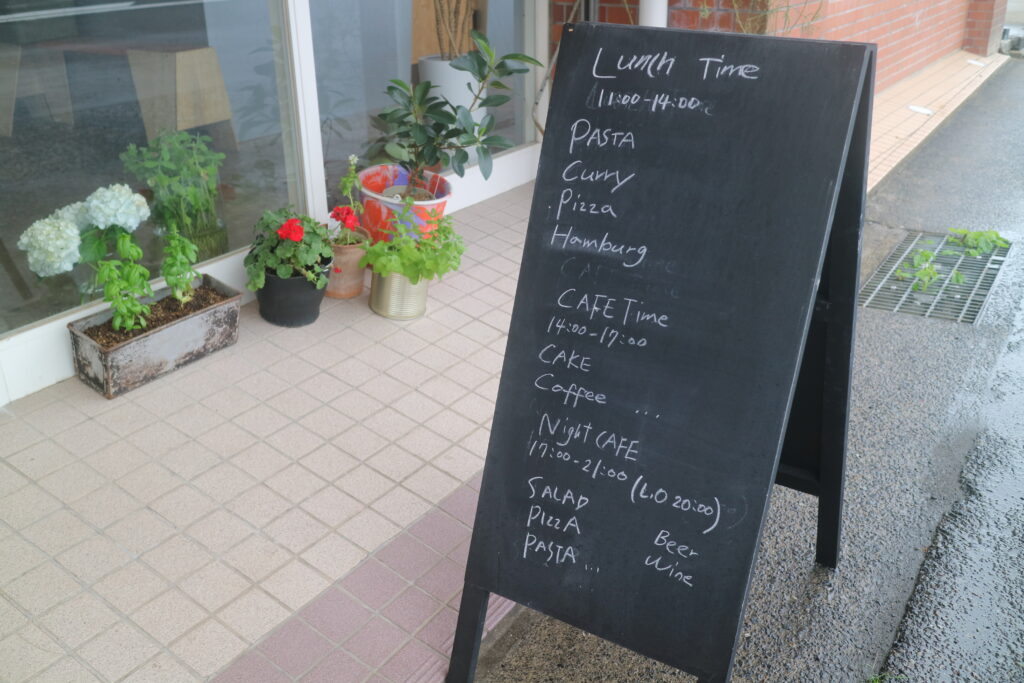 Lunch Time
11:00-14:00
PASTA
Curry
Pizza
Hamburg
CAFE Time
14:00-17:00
CAKE
Coffee ...
Night CAFE
17:00-21:00 (L.O 20:00)
SALAD
PIZZA Beer
PASTA ... Wine